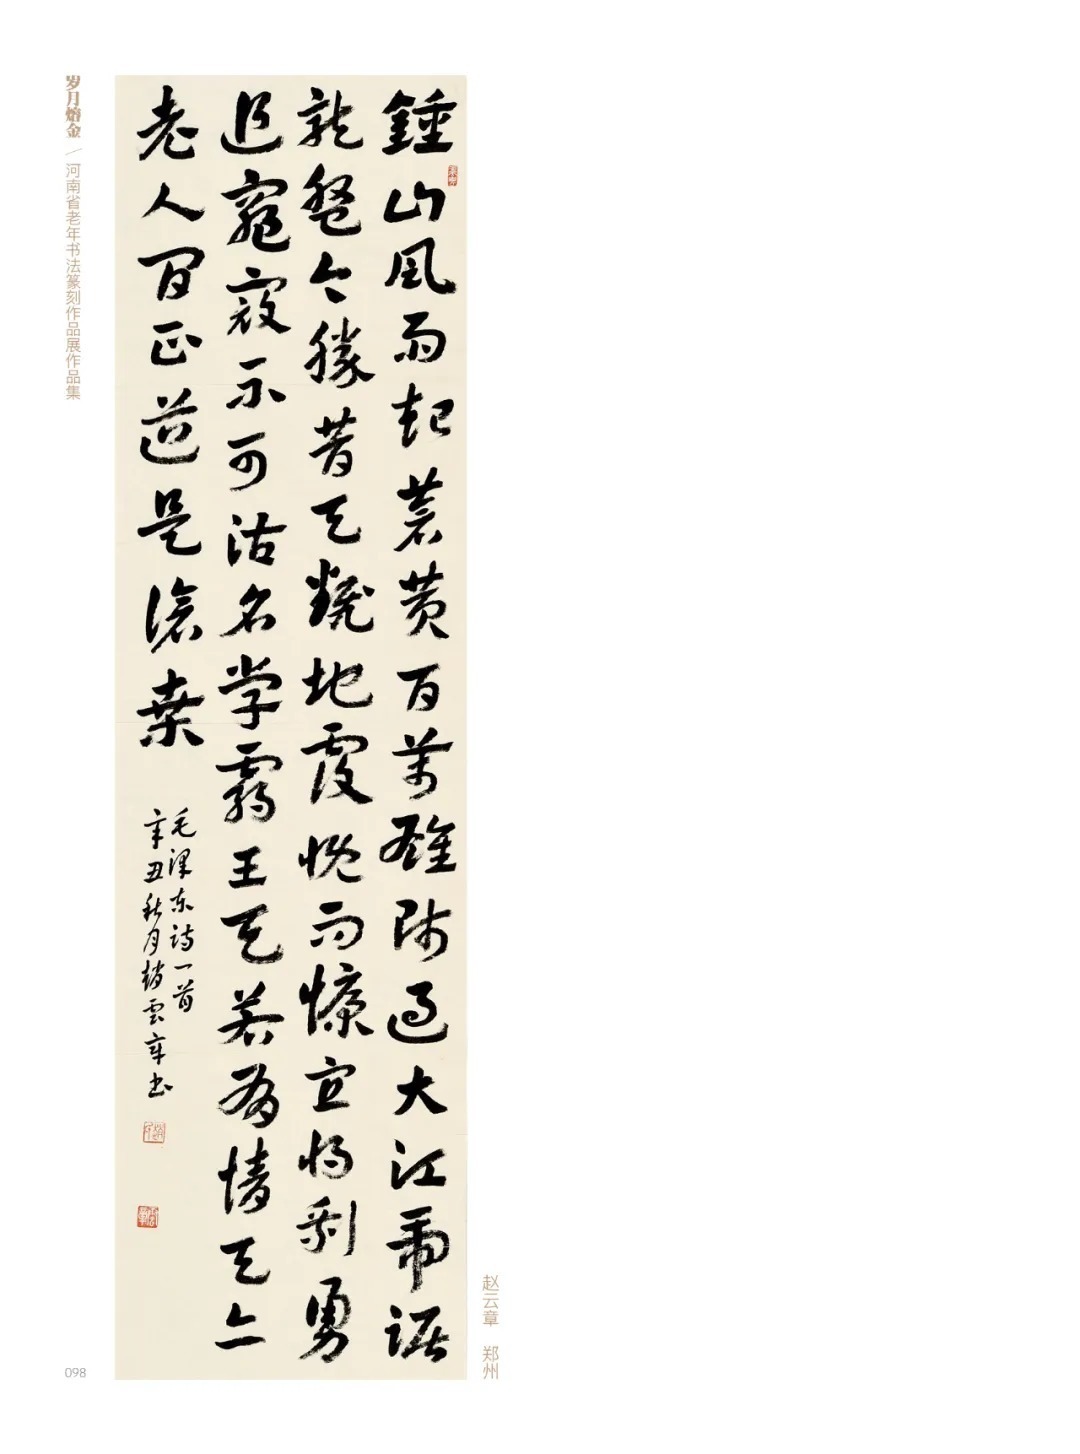 岁月熔金 / 河南省老年书法篆刻作品展作品集
鍾山風雨起蒼黄百萬雄師過大江虎踞
龍盤今勝昔天翻地覆慨而慷宜將剩勇
追窮寇不可沽名学霸王天若有情天亦
老人間正道是滄桑
毛澤东诗一首
辛丑秋月趙雲章书
赵云章 郑州
098